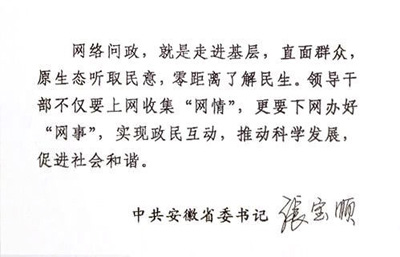 网络问政，就是走进基层，直面群众，
原生态听取民意，零距离了解民生。领导干
部不仅要上网收集“网情”，更要下网办好
“网事”，实现政民互动，推动科学发展，
促进社会和谐。
中共安徽省委书记 張宝顺